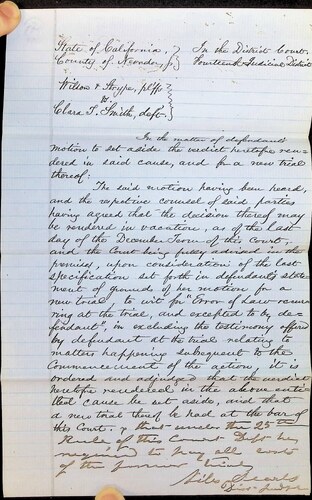 State of California, In the District Court
County of Fourteenth Judicial District
Wilson & Strype, plffs
vs.
Clara T. Smith, deft.
In the matter of defendants
motion to set aside the verdict heretofore ren-
dered in said cause, and for a new trial
thereof:
The said motion having been heard,
and the respective counsel of said parties
having agreed that the decision thereof may
be rendered in vacation, as of the last
day of the December Term of this court,
and the Court being fully advised in the
premises, upon consideration of the last
specification set forth in defendants state-
ment of grounds of her motion for a
new trial, to wit for "Error of Law occur-
ring at the trial, and excepted to by de-
fendant", in excluding the testimony offered
by defendant at the trial relating to
matters happening subsequent to the
Commencement of the action, it is
ordered and adjudged that the verdict
heretofore rendered in the above enti-
tled cause be set aside, and that
a new trial thereof be had at the bar of
this Court. & that under the 25th
Rule of this Court Deft be
required to pay all costs
of the former trial
Niles Searls
Dist Judge